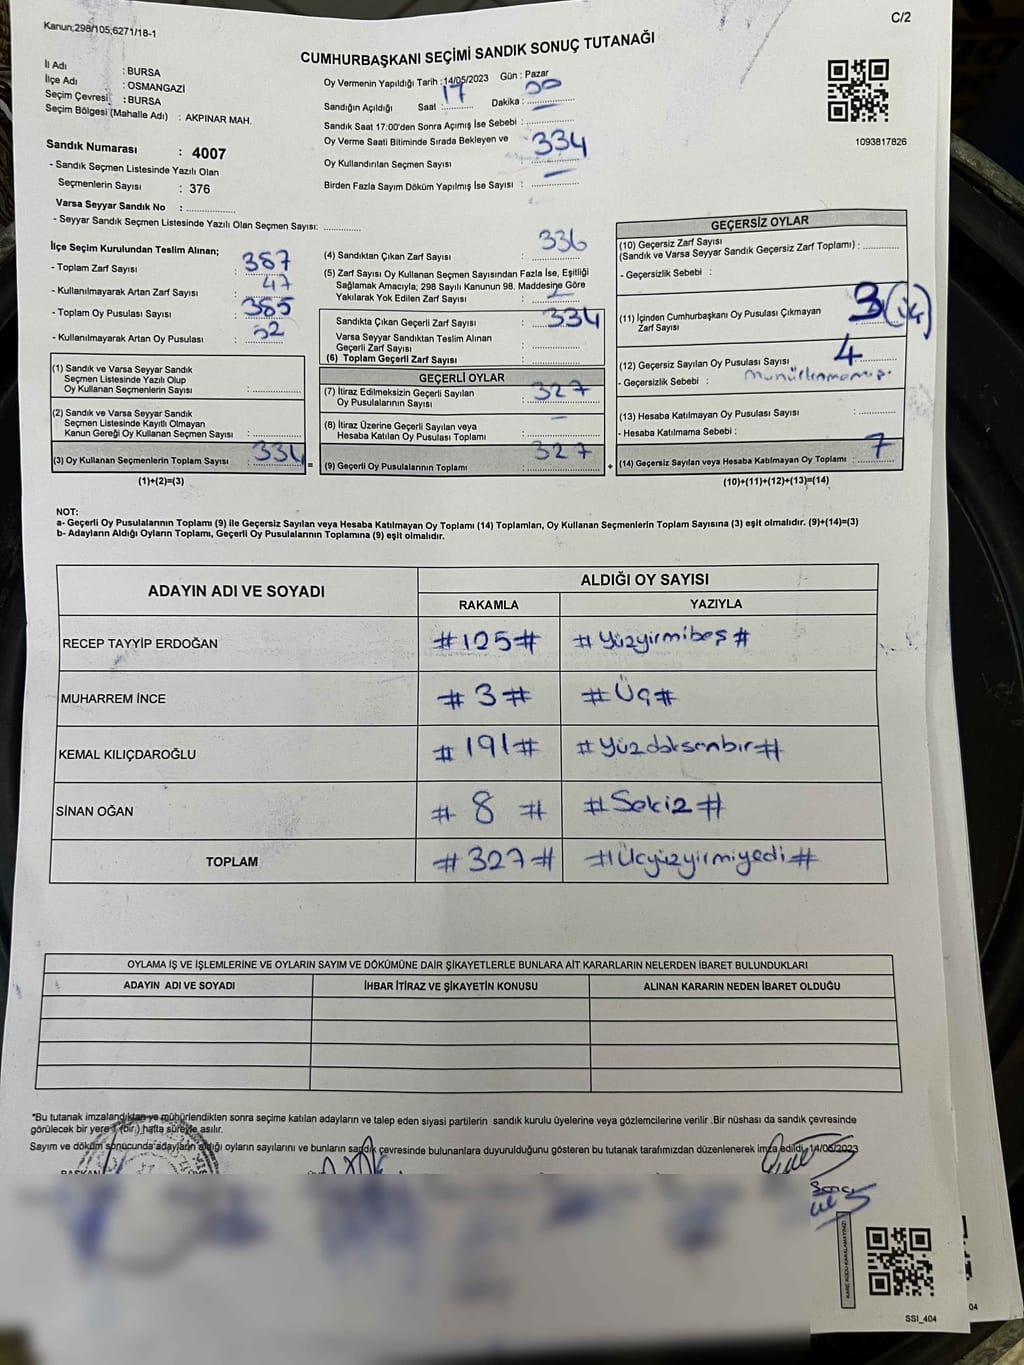 Kanun;298/105;6271/18-1
C/2
CUMHURBAŞKANI SEÇİMİ SANDIK SONUÇ TUTANAĞI
İl Adı : BURSA
İlçe Adı : OSMANGAZİ
Seçim Çevresi : BURSA
Seçim Bölgesi (Mahalle Adı) : AKPINAR MAH.
Sandık Numarası : 4007
- Sandık Seçmen Listesinde Yazılı Olan
Seçmenlerin Sayısı : 376
Varsa Seyyar Sandık No : ................
- Seyyar Sandık Seçmen Listesinde Yazılı Olan Seçmen Sayısı: ............
Oy Vermenin Yapıldığı Tarih :14/05/2023 Gün : Pazar
Sandığın Açıldığı Saat : 17 Dakika : 00
Sandık Saat 17:00'den Sonra Açımış İse Sebebi : ................
Oy Verme Saati Bitiminde Sırada Bekleyen ve
Oy Kullandırılan Seçmen Sayısı : 334
Birden Fazla Sayım Döküm Yapılmış İse Sayısı : —
1093817826
İlçe Seçim Kurulundan Teslim Alınan;
- Toplam Zarf Sayısı : 387
- Kullanılmayarak Artan Zarf Sayısı : 47
- Toplam Oy Pusulası Sayısı : 385
- Kullanılmayarak Artan Oy Pusulası : 52
(1) Sandık ve Varsa Seyyar Sandık
Seçmen Listesinde Yazılı Olup
Oy Kullanan Seçmenlerin Sayısı : ............
(2) Sandık ve Varsa Seyyar Sandık
Seçmen Listesinde Kayıtlı Olmayan
Kanun Gereği Oy Kullanan Seçmen Sayısı : ............
(3) Oy Kullanan Seçmenlerin Toplam Sayısı : 334
(1)+(2)=(3)
(4) Sandıktan Çıkan Zarf Sayısı : 336
(5) Zarf Sayısı Oy Kullanan Seçmen Sayısından Fazla İse, Eşitliği
Sağlamak Amacıyla; 298 Sayılı Kanunun 98. Maddesine Göre
Yakılarak Yok Edilen Zarf Sayısı : 2
Sandıkta Çıkan Geçerli Zarf Sayısı : 334
Varsa Seyyar Sandıktan Teslim Alınan
Geçerli Zarf Sayısı : ............
(6) Toplam Geçerli Zarf Sayısı : ............
=
GEÇERLİ OYLAR
(7) İtiraz Edilmeksizin Geçerli Sayılan
Oy Pusulalarının Sayısı : 327
(8) İtiraz Üzerine Geçerli Sayılan veya
Hesaba Katılan Oy Pusulası Toplamı : —
(9) Geçerli Oy Pusulalarının Toplamı : 327
+
GEÇERSİZ OYLAR
(10) Geçersiz Zarf Sayısı
(Sandık ve Varsa Seyyar Sandık Geçersiz Zarf Toplamı) : ............
- Geçersizlik Sebebi :
(11) İçinden Cumhurbaşkanı Oy Pusulası Çıkmayan
Zarf Sayısı 3 (üç)
(12) Geçersiz Sayılan Oy Pusulası Sayısı : 4
- Geçersizlik Sebebi :
(13) Hesaba Katılmayan Oy Pusulası Sayısı : ............
- Hesaba Katılmama Sebebi :
(14) Geçersiz Sayılan veya Hesaba Katılmayan Oy Toplamı : 7
(10)+(11)+(12)+(13)=(14)
NOT:
a- Geçerli Oy Pusulalarının Toplamı (9) ile Geçersiz Sayılan veya Hesaba Katılmayan Oy Toplamı (14) Toplamları, Oy Kullanan Seçmenlerin Toplam Sayısına (3) eşit olmalıdır. (9)+(14)=(3)
b- Adayların Aldığı Oyların Toplamı, Geçerli Oy Pusulalarının Toplamına (9) eşit olmalıdır.
ADAYIN ADI VE SOYADI
ALDIĞI OY SAYISI
RAKAMLA YAZIYLA
RECEP TAYYİP ERDOĞAN #125# #Yüzyirmibeş#
MUHARREM İNCE #3# #Üç#
KEMAL KILIÇDAROĞLU #191# #Yüzdoksanbir#
SİNAN OĞAN #8# #Sekiz#
TOPLAM #327# #Üçyüzyirmiyedi#
OYLAMA İŞ VE İŞLEMLERİNE VE OYLARIN SAYIM VE DÖKÜMÜNE DAİR ŞİKAYETLERLE BUNLARA AİT KARARLARIN NELERDEN İBARET BULUNDUKLARI
ADAYIN ADI VE SOYADI İHBAR İTİRAZ VE ŞİKAYETİN KONUSU ALINAN KARARIN NEDEN İBARET OLDUĞU
*Bu tutanak imzalandıktan ve mühürlendikten sonra seçime katılan adayların ve talep eden siyasi partilerin sandık kurulu üyelerine veya gözlemcilerine verilir .Bir nüshası da sandık çevresinde
görülecek bir yere 1 (bir) hafta süreyle asılır.
Sayım ve döküm sonucunda adayların aldığı oyların sayılarını ve bunların sandık çevresinde bulunanlara duyurulduğunu gösteren bu tutanak tarafımızdan düzenlenerek imza edildi. 14/05/2023
SSI_404
04